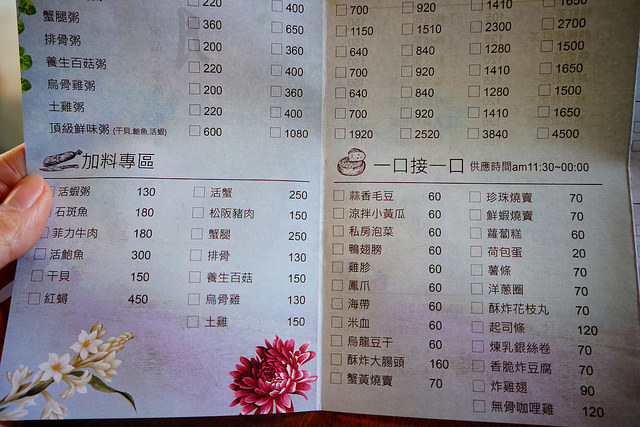 220 400 700 920 1410 1650
蟹腿粥 360 650 1150 1510 2300 2700
排骨粥 200 360 640 840 1280 1500
養生百菇粥 220 400 700 920 1410 1650
烏骨雞粥 200 360 640 840 1280 1500
土雞粥 220 400 700 920 1410 1650
頂級鮮味粥 (干貝,鮑魚,活蝦) 600 1080 1920 2520 3840 4500
加料專區
活蝦粥 130 活蟹 250
石斑魚 180 松阪豬肉 150
菲力牛肉 180 蟹腿 250
活鮑魚 300 排骨 130
干貝 150 養生百菇 150
紅蟳 450 烏骨雞 130
土雞 150
一口接一口 供應時間am11:30~00:00
蒜香毛豆 60 珍珠燒賣 70
涼拌小黃瓜 60 鮮蝦燒賣 70
私房泡菜 60 蘿蔔糕 60
鴨翅膀 60 荷包蛋 20
雞胗 60 薯條 70
鳳爪 60 洋蔥圈 70
海帶 60 酥炸花枝丸 70
米血 60 起司條 120
烏龍豆干 60 煉乳銀絲卷 70
酥炸大腸頭 160 香脆炸豆腐 70
蟹黃燒賣 70 炸雞翅 90
無骨咖哩雞 120